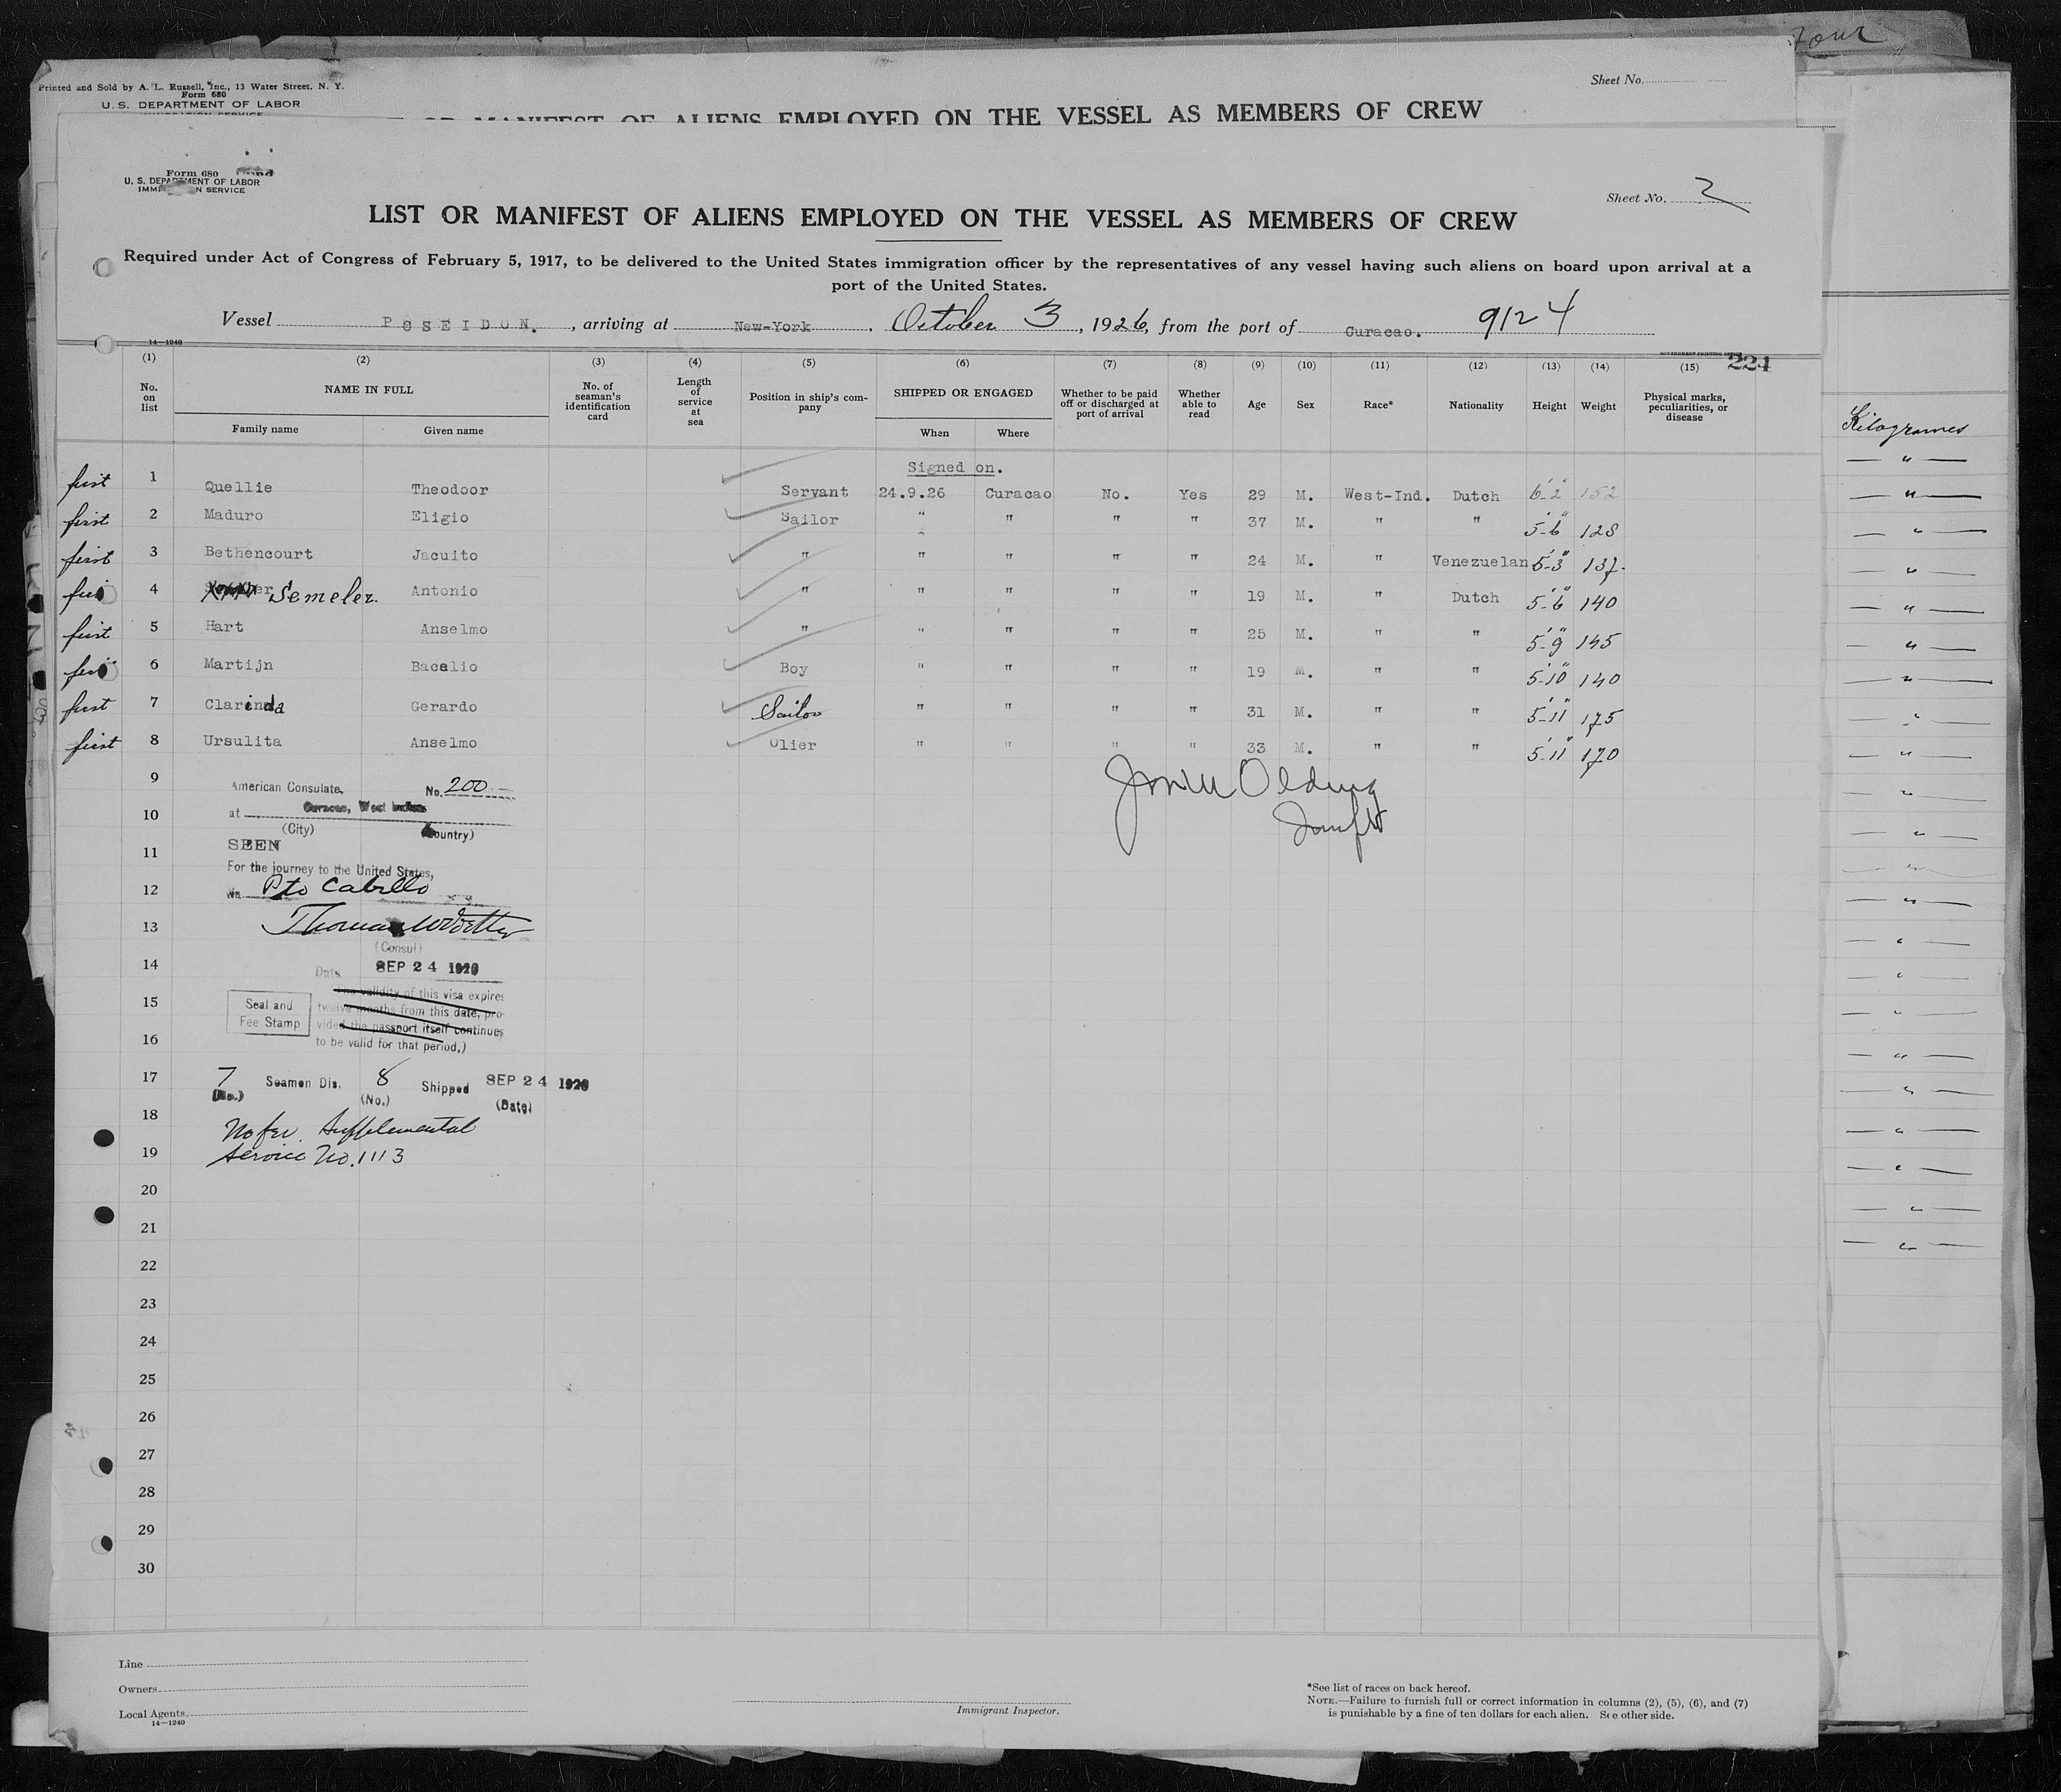 Four
Printed and Sold by A. L. Russell, Inc., 13 Water Street, N. Y.
Form 680
U. S. DEPARTMENT OF LABOR
Sheet No.
OR MANIFEST OF ALIENS EMPLOYED ON THE VESSEL AS MEMBERS OF CREW
Form 680
U. S. DEPARTMENT OF LABOR
IMMIGRATION SERVICE
Sheet No. 2
LIST OR MANIFEST OF ALIENS EMPLOYED ON THE VESSEL AS MEMBERS OF CREW
Required under Act of Congress of February 5, 1917, to be delivered to the United States immigration officer by the representatives of any vessel having such aliens on board upon arrival at a
port of the United States.
Vessel POSEIDON., arriving at New-York. October 3, 1926, from the port of Curacao. 9124
14—1240
GOVERNMENT PRINTING OFFICE
224
(1) (2) (3) (4) (5) (6) (7) (8) (9) (10) (11) (12) (13) (14) (15)
No. on list NAME IN FULL No. of seaman's identification card Length of service at sea Position in ship's company SHIPPED OR ENGAGED Whether to be paid off or discharged at port of arrival Whether able to read Age Sex Race* Nationality Height Weight Physical marks, peculiarities, or disease
Family name Given name When Where
Kilogrames
Signed on.
first 1 Quellie Theodoor Servant 24.9.26 Curacao No. Yes 29 M. West-Ind. Dutch 6'-2" 152
first 2 Maduro Eligio Sailor " " " " 37 M. " " 5'-6" 128
first 3 Bethencourt Jacuito " " " " " 24 M. " Venezuelan 5'-3" 137.
first 4 Semeler. Antonio " " " " " 19 M. " Dutch 5'-6" 140
first 5 Hart Anselmo " " " " " 25 M. " " 5'-9" 145
first 6 Martijn Bacalio Boy " " " " 19 M. " " 5'-10" 140
first 7 Clarinda Gerardo Sailor " " " " 31 M. " " 5'-11" 175
first 8 Ursulita Anselmo Olier " " " " 33 M. " " 5'-11" 170
9
10
11
12
13
14
15
16
17
18
19
20
21
22
23
24
25
26
27
28
29
30
American Consulate. No. 200
at Curacao, West Indies
(City) (Country)
SEEN
For the journey to the United States,
via Pto Cabello
(Consul)
Date SEP 24 1926
Seal and
Fee Stamp
The validity of this visa expires
twelve months from this date, pro-
vided the passport itself continues
to be valid for that period,)
7 Seamen Dis. 8 Shipped SEP 24 1926
(No.) (No.) (Date)
No fee. Supplemental
Service No. 1113
Line
Owners
Local Agents
14—1240
Immigrant Inspector.
*See list of races on back hereof.
NOTE.—Failure to furnish full or correct information in columns (2), (5), (6), and (7)
is punishable by a fine of ten dollars for each alien. See other side.